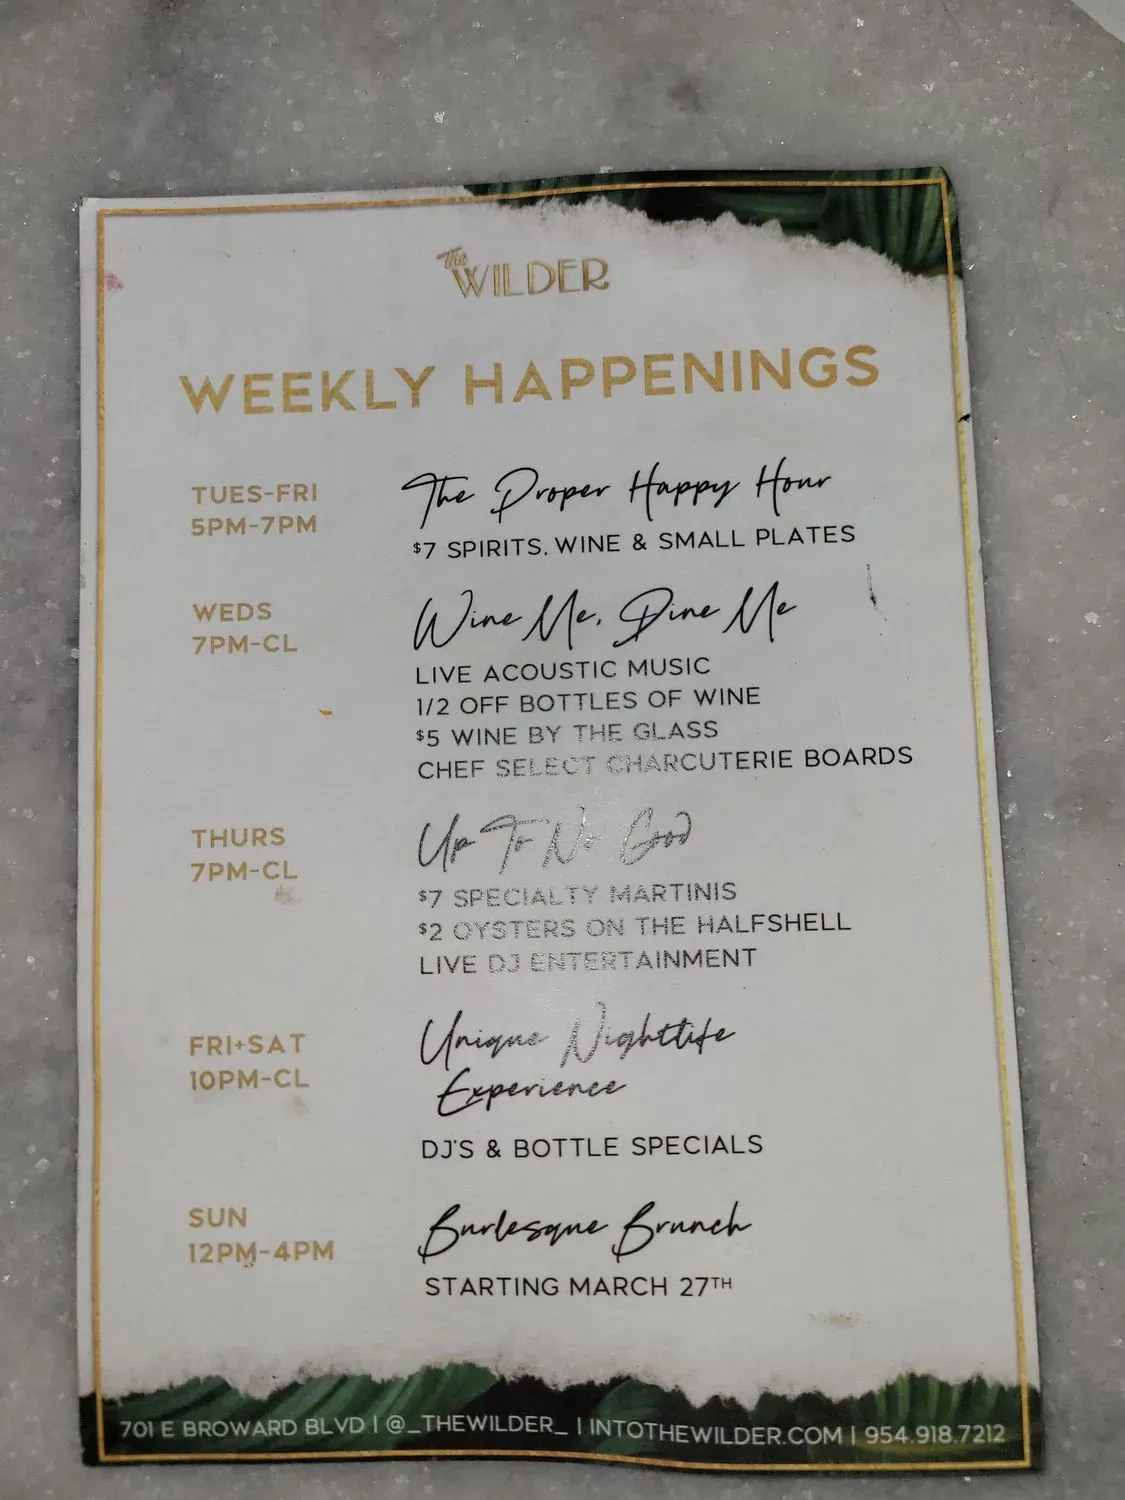 The WILDER
WEEKLY HAPPENINGS
TUES-FRI
5PM-7PM
The Proper Happy Hour
$7 SPIRITS, WINE & SMALL PLATES
WEDS
7PM-CL
Wine Me, Dine Me
LIVE ACOUSTIC MUSIC
1/2 OFF BOTTLES OF WINE
$5 WINE BY THE GLASS
CHEF SELECT CHARCUTERIE BOARDS
THURS
7PM-CL
Up To No Good
$7 SPECIALTY MARTINIS
$2 OYSTERS ON THE HALFSHELL
LIVE DJ ENTERTAINMENT
FRI+SAT
10PM-CL
Unique Nightlife
Experience
DJ'S & BOTTLE SPECIALS
SUN
12PM-4PM
Burlesque Brunch
STARTING MARCH 27TH
701 E BROWARD BLVD | @_THEWILDER_ | INTOTHEWILDER.COM | 954.918.7212